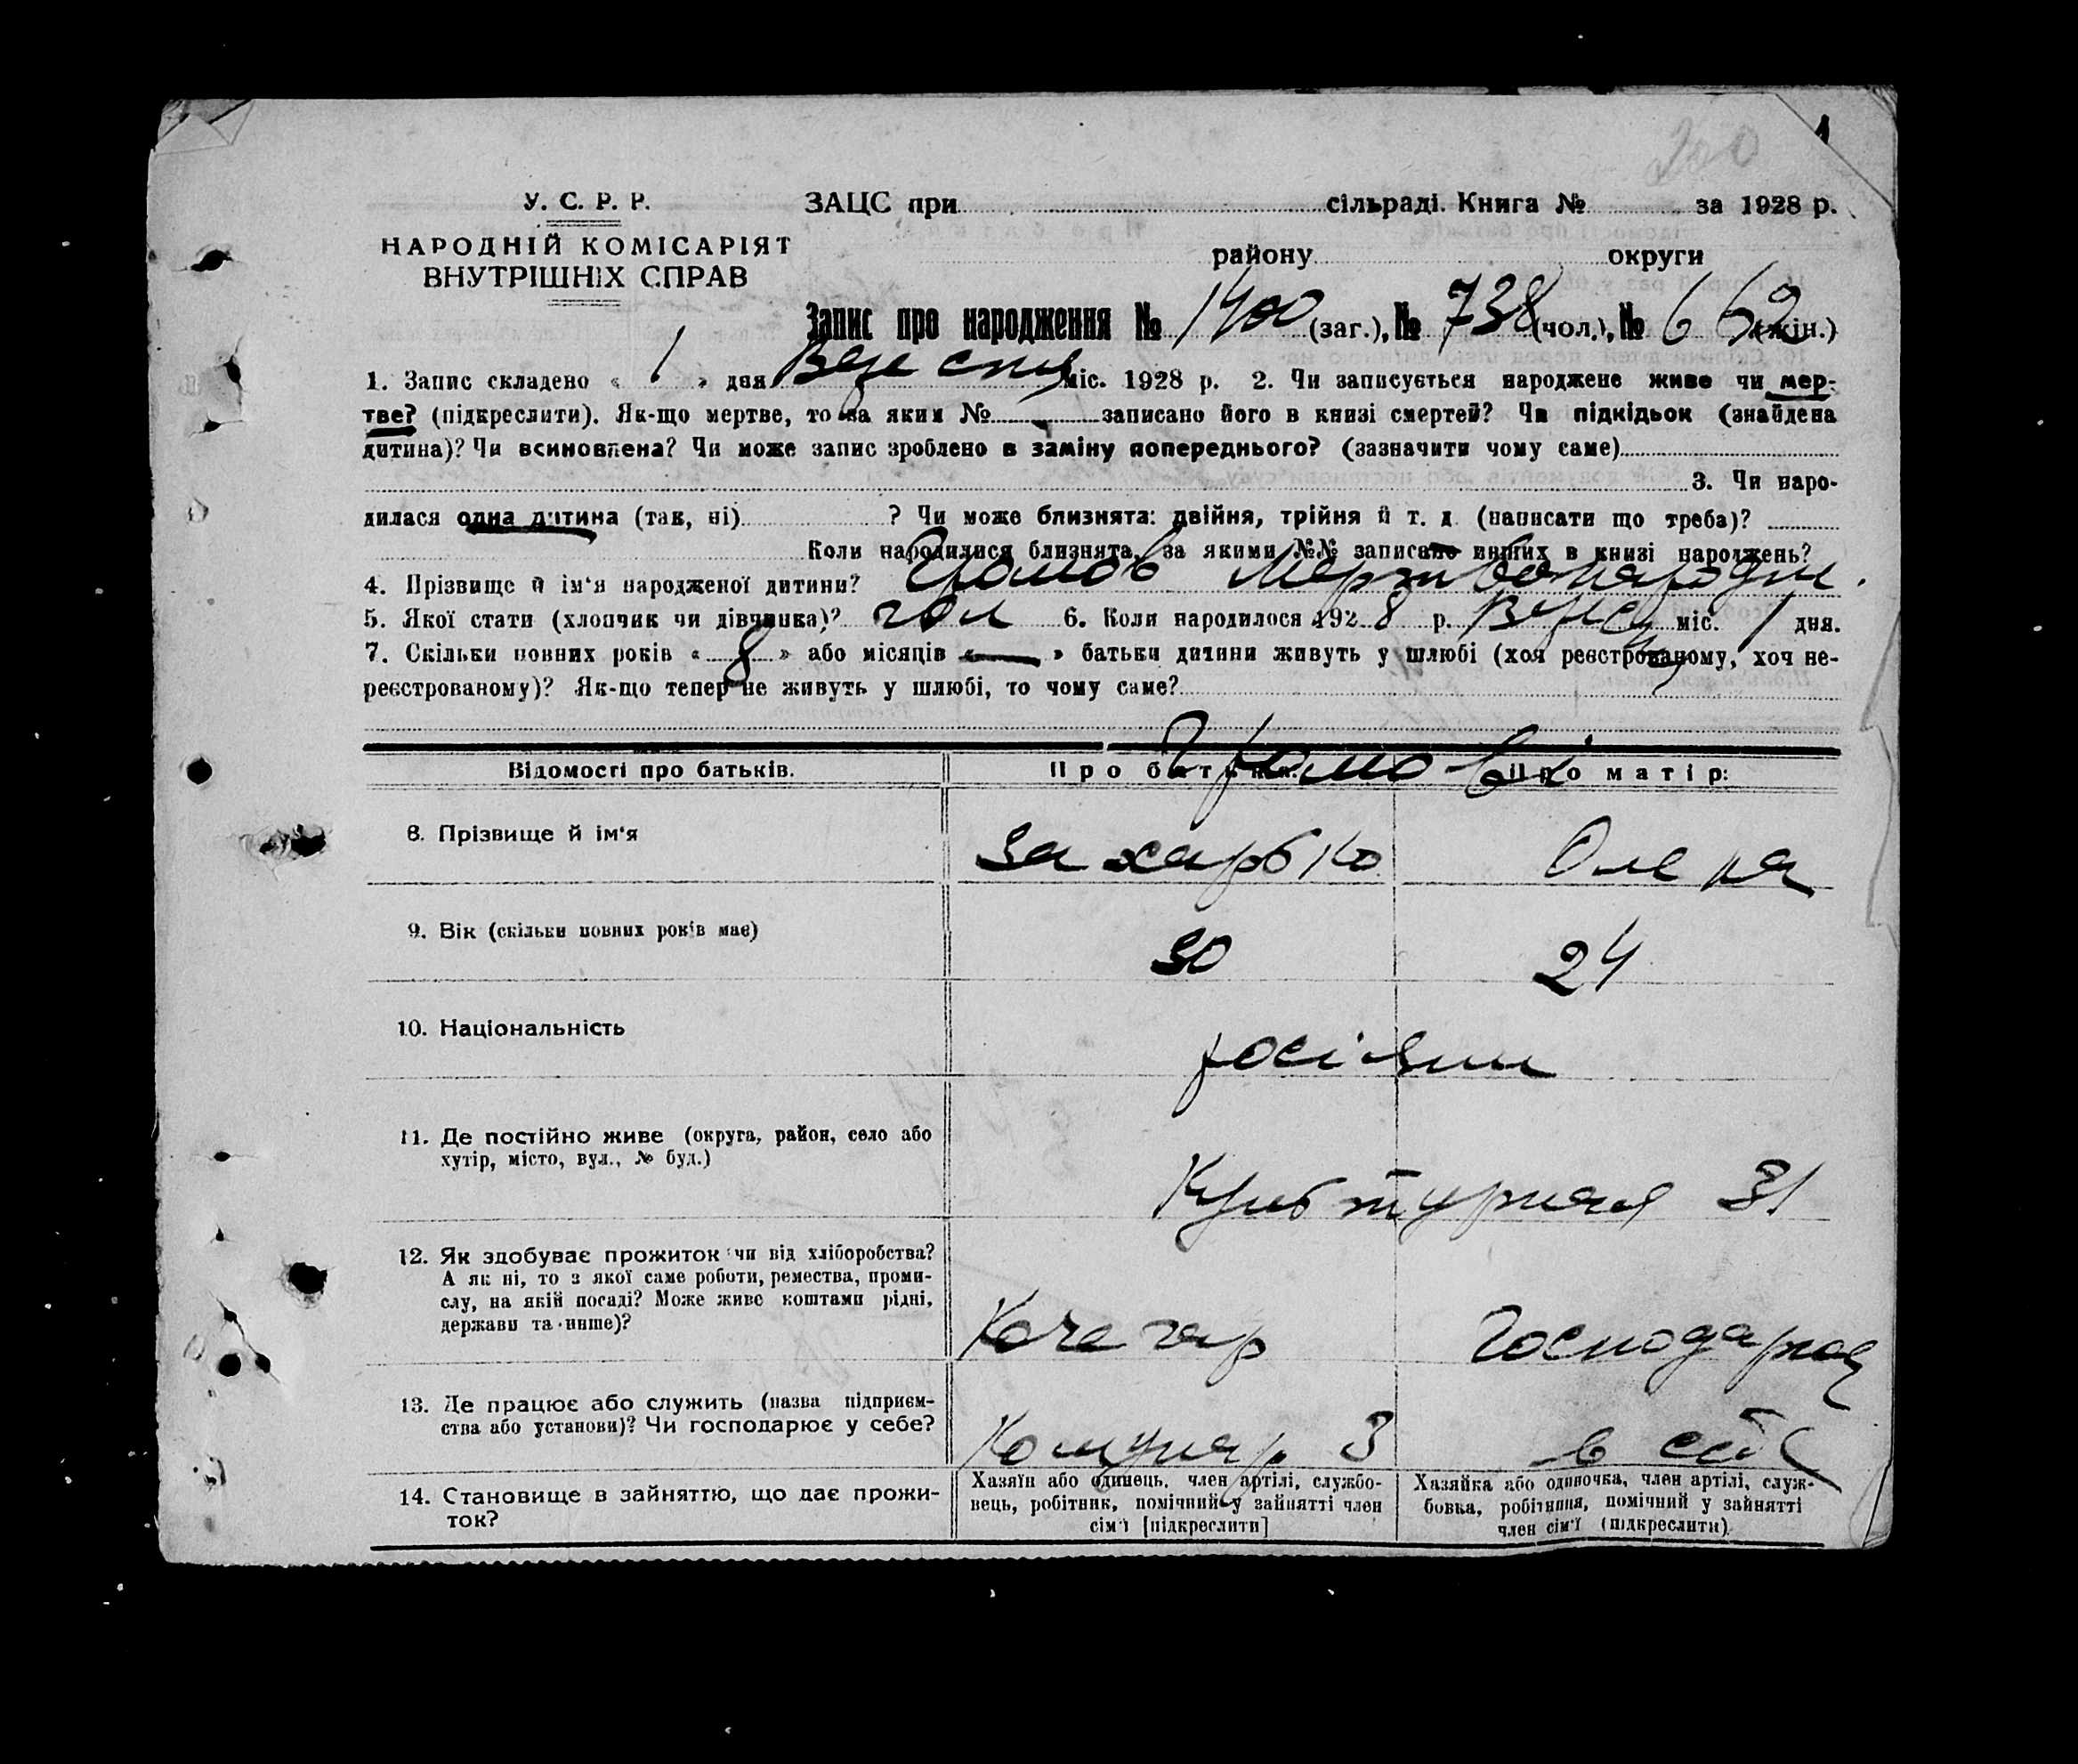 200
У. С. Р. Р.
НАРОДНІЙ КОМІСАРІЯТ
ВНУТРІШНІХ СПРАВ
ЗАЦС при сільраді. Книга № за 1928 р.
району округи
Запис про народження № 1400 (заг.), № 738 (чол.), № 662 (жін.)
1. Запис складено « 1 » дня Вересня міс. 1928 р. 2. Чи записується народжене живе чи мер-
тве? (підкреслити). Як-що мертве, то за яким № записано його в книзі смертей? Чи підкідьок (знайдена
дитина)? Чи всиновлена? Чи може запис зроблено в заміну попереднього? (зазначити чому саме)
3. Чи наро-
дилася одна дитина (так, ні) ? Чи може близнята: двійня, трійня й т. д. (написати що треба)?
Коли народилися близнята, за якими №№ записано инших в книзі народжень?
4. Прізвище й ім'я народженої дитини? Громов Мертвонародж.
5. Якої стати (хлопчик чи дівчинка)? чол 6. Коли народилося 1928 р. Верес міс. 1 дня.
7. Скільки повних років « 8 » або місяців « — » батьки дитини живуть у шлюбі (хоч реєстрованому, хоч не-
реєстрованому)? Як-що тепер не живуть у шлюбі, то чому саме?
Відомості про батьків. Про батька: Про матір:
Громови
8. Прізвище й ім'я Захарько Олена
9. Вік (скільки повних років має) 30 24
10. Національність росіяни
11. Де постійно живе (округа, район, село або
хутір, місто, вул., № буд.) Культурная 31
12. Як здобуває прожиток чи від хліборобства?
А як ні, то з якої саме роботи, ремества, проми-
слу, на якій посаді? Може живе коштами рідні,
держави та инше)? Кочегар Господарює
13. Де працює або служить (назва підприєм-
ства або установи)? Чи господарює у себе? Комунар 3 в сім
14. Становище в зайняттю, що дає прожи-
ток?
Хазяїн або одинець, член артілі, службо-
вець, робітник, помічний у зайнятті член
сім'ї [підкреслити]
Хазяйка або одиночка, член артілі, служ-
бовка, робітниця, помічний у зайнятті
член сім'ї (підкреслити)